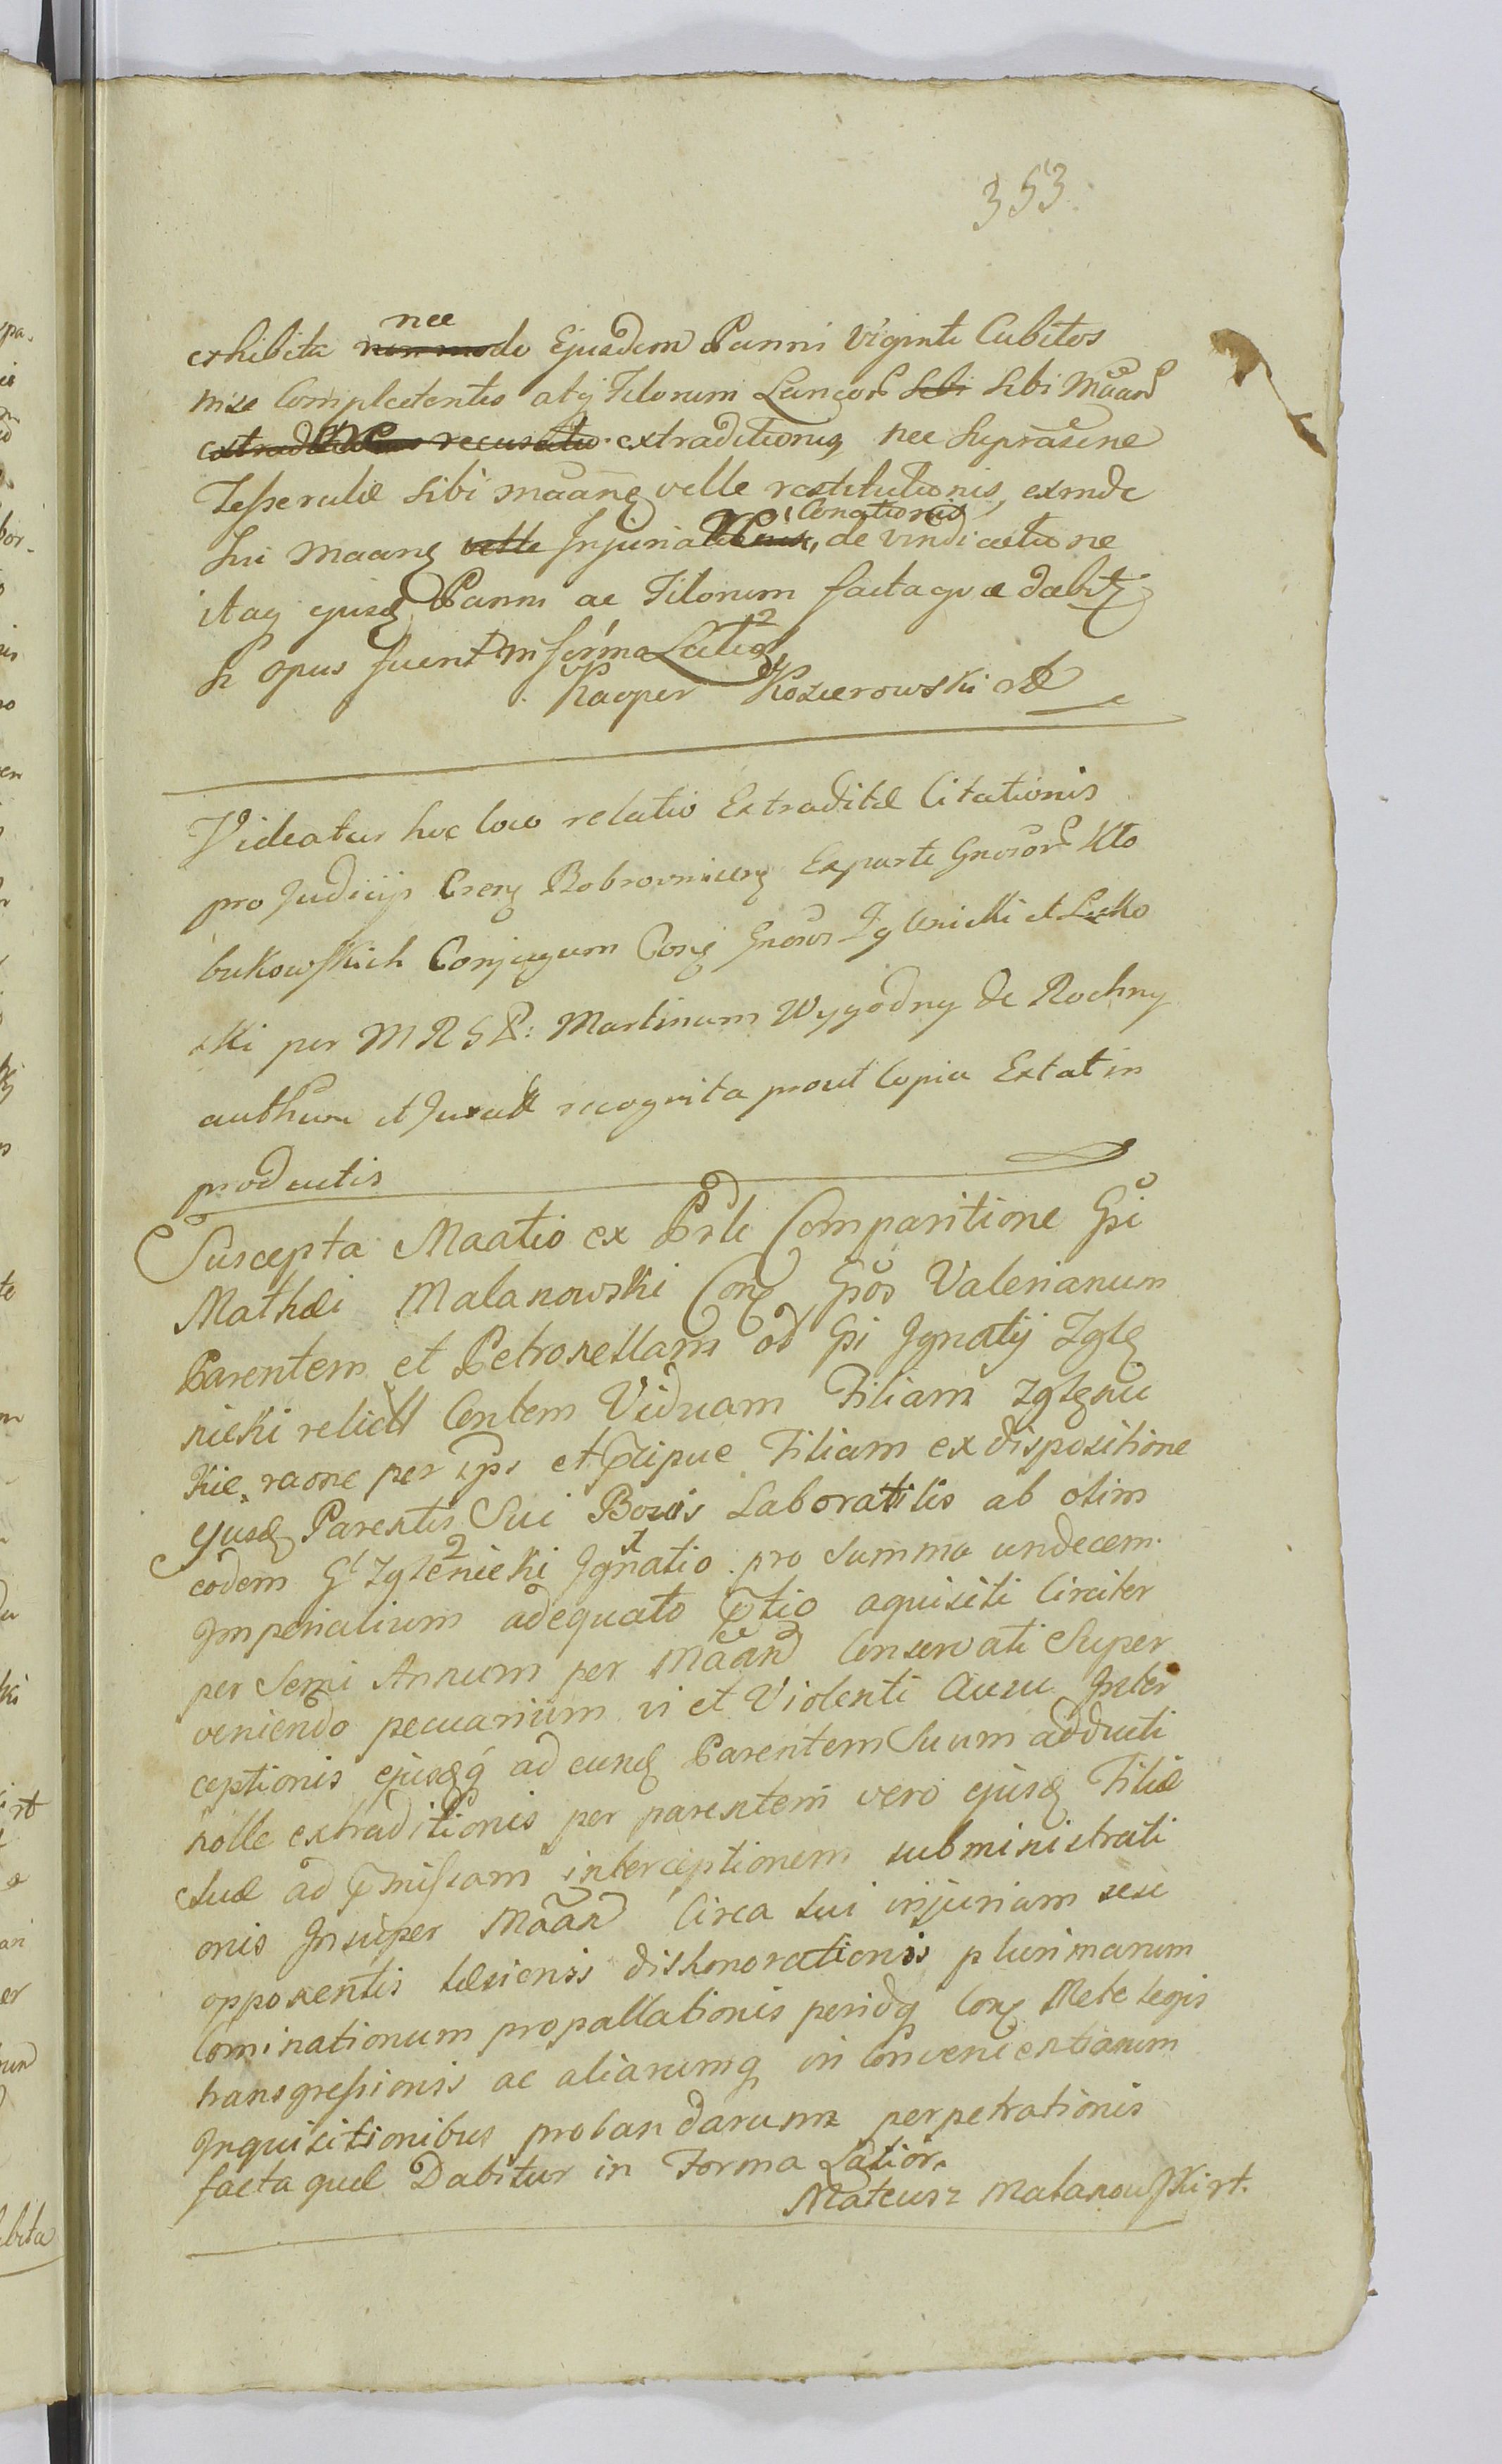 353
nec
exhibita non modo Ejusdem Panni Viginti Cubitos
mise Complectentis atq Filorum sibi sibi Maand
recusatio extraditionis, nec Suprascine
Tesserulæ sibi maang velle restitutionis, exinde
Conationis
sui maang velle Injuria de vindicatione
itaq ejusd Panni ac Filorum facta quæ dabitz
si opus fuerit in forma Latio
Kacper Kozierowski
Videatur hoc loco relatio Extraditæ Citationis
pro Judicijs Crenz Bobrovnicenz Exparte Gnosor Kło
bukowskich Conjugum Conz Gnosos Zglenicki et Lecko
ski per M R G P: Martinum Wygodny de Rochny
authen et Jurat recognita prout Copia Extat in
productis
Suscepta Maatio ex Prli Comparitione Gsi
Mathæi Malanowski Conz Gsos Valerianum
Parentem et Petronellam od Gsi Jgnatij Zglę
nicki relict Contem Viduam Filiam Zglenic
kie, raone per ips et Pcipue Filiam ex dispositione
ejusd Parentis Sui Bovis Laboratilis ab olim
eodem Gl Zglenicki Jgnatio pro Summa undecem
Imperialium adequato ptio aquisiti Circiter
per Semi Annum per Maand Conservati Super
veniendo pecuarium vi et Violenti Ausu Inter
ceptionis ejusdq ad eund Parentem Suum adducti
nolle extraditionis per parentem vero ejusd Filiæ
suæ ad pmissam interceptionem subministrati
onis Insuper Maand Circa sui injuriam sese
opponentis læsionis dishonorationis plurimarum
Cominationum propallationis peridq Conz Mete legis
transgressionis ac aliarumq in Convenientiarum
Inquisitionibus probandarum perpetrationis
facta quæ Dabitur in Forma Latior.
Mateusz Malanowski rt.